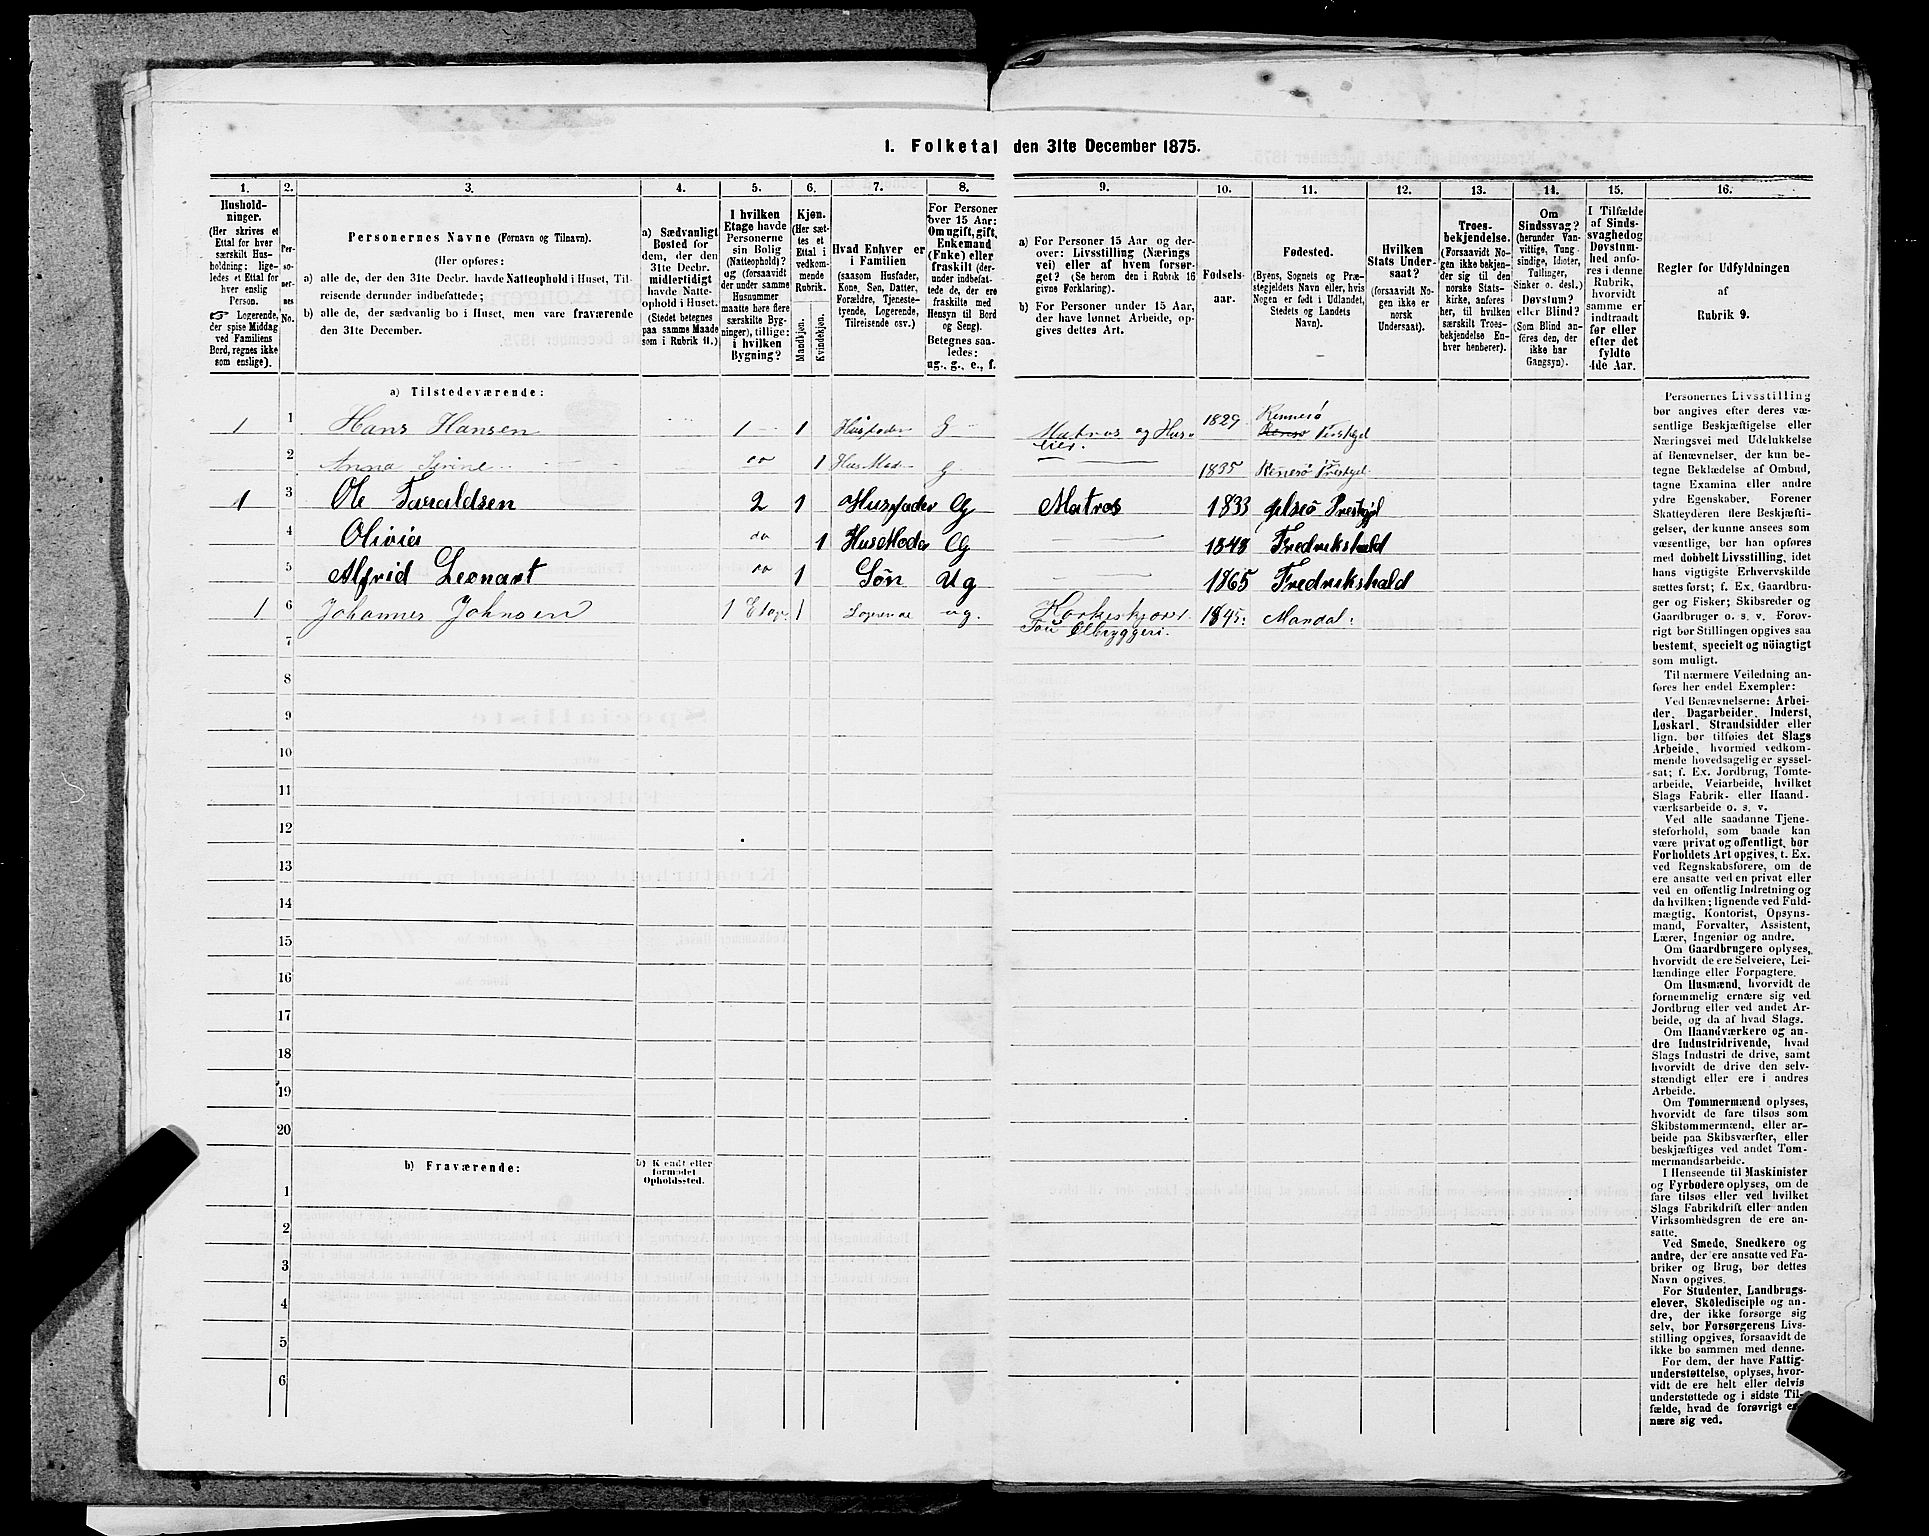 1. Folketal den 31te December 1875.
1. 2. 3. 4. 5. 6. 7. 8. 9. 10. 11. 12. 13. 14. 15. 16.
Husholdninger.
(Her skrives et
Ettal for hver
særskilt Husholdning;
ligeledes et Ettal for
hver enslig
Person.
☞ Logerende,
der spise Middag
ved Familiens
Bord, regnes ikke
som enslige).
Personernes
No.
Personernes Navne (Fornavn og Tilnavn).
(Her opføres:
a) alle de, der den 31te Decbr. havde Natteophold i Huset, Tilreisende derunder indbefattede;
b) alle de, der sædvanlig bo i Huset, men vare fraværende
den 31te December.
a) Sædvanligt
Bosted for
dem, der den
31te Decbr.
midlertidigt
havde Natteophold i Huset.
(Stedet betegnes
paa samme Maade
som i Rubrik 11.)
I hvilken
Etage havde
Personerne
sin Bolig
(Natteophold)?
og (forsaavidt
der under samme
Husnummer
maatte høre flere
særskilte Bygninger), tillige:
i hvilken
Bygning?
Kjøn.
(Her sættes et
Ettal i
vedkommende
Rubrik.
Mandkjøn.
Kvindekjøn.
Hvad Enhver er
i Familien
(saasom Husfader,
Kone, Søn, Datter,
Forældre, Tjenestetyende, Logerende,
Tilreisende osv.)
For Personer
over 15 Aar:
Om ugift, gift,
Enkemand
(Enke) eller
fraskilt (derunder indbefattede de, der ere
fraskilte med
Hensyn til Bord
og Seng).
Betegnes saaledes:
ug., g., e., f.
a) For Personer 15 Aar og derover: Livsstilling (Næringsvei) eller af hvem forsørget? (Se herom den i Rubrik 16
givne Forklaring).
b) For Personer under 15 Aar,
der have lønnet Arbeide, opgives dettes Art.
Fødselsaar.
Fødested.
(Byens, Sognets og Præstegjeldets Navn eller, hvis
Nogen er født i Udlandet,
Stedets og Landets
Navn).
Hvilken
Stats Undersaat?
(forsaavidt Nogen ikke er
norsk
Undersaat).
Troesbekjendelse.
(Forsaavidt Nogen ikke bekjender sig til den
norske Statskirke, anføres
her, til hvilken
særskilt Troesbekjendelse Enhver henhører).
Om
Sindssvag?
(herunder Vanvittige, Tungsindige, Idioter,
Tullinger,
Sinker o. desl.)
Døvstum?
eller Blind?
(Som Blind anføres den, der
ikke har
Gangsyn).
I Tilfælde
af Sindssvaghed og
Døvstumhed anføres i denne
Rubrik,
hvorvidt
samme er
indtraadt
før eller
efter det
fyldte
4de Aar.
Regler for Udfyldningen
af
Rubrik 9.
a) Tilstedeværende:
1 1 Hans Hansen 1 1 Husfader g Matros og Huseier. 1829 Rennesø Prestgjel
2 Anna Serine do 1 HusModer g 1835 Rennesø Prestgjel.
1 3 Ole Taraldsen 2 1 Husfader G Matros 1833 Prestgjel
4 Olivia do 1 HusModer G 1848 Fredrikshald
5 Alfrid Leonart do 1 Søn Ug 1865 Fredrikshald
1 6 Johannes Johnsen 1 Etage 1 Logerende ug. Tou Ølbryggeri. 1845. Mandal.
7
8
9
10
11
12
13
14
15
16
17
18
19
20
b) Fraværende:
b) Kjendt eller
formodet
Opholdssted.
1
2
3
4
5
6
Personernes Livsstilling
bør angives efter deres væsentlige Beskjæftigelse eller
Næringsvei med Udelukkelse
af Benævnelser, der kun betegne Beklædelse af Ombud,
tagne Examina eller andre
ydre Egenskaber. Forener
Skatteyderen flere Beskjæftigelser, der kunne ansees som
væsentlige, bør han opføres
med dobbelt Livsstilling, idet
hans vigtigste Erhvervskilde
sættes først; f. Ex. Gaardbruger og Fisker; Skibsreder og
Gaardbruger o. s. v. Forøvrigt bør Stillingen opgives saa
bestemt, specielt og nöiagtigt
som muligt.
Til nærmere Veiledning anføres her endel Exempler:
Ved Benævnelserne: Arbeider, Dagarbeider, Inderst,
Løskarl, Strandsidder eller
lign. bør tilføies det Slags
Arbeide, hvormed vedkommende hovedsagelig er sysselsat; f. Ex. Jordbrug, Tomtearbeide, Veiarbeide, hvilket
Slags Fabrik- eller Haandværksarbeide o. s. v.
Ved alle saadanne Tjenesteforhold, som baade kan
være privat og offentligt, bør
Forholdets Art opgives, t. Ex.
ved Regnskabsførere, om de
ere ansatte ved en privat eller
ved en offentlig Indretning og
da hvilken; lignende ved Fuldmægtig, Kontorist, Opsynsmand, Forvalter, Assistent,
Lærer, Ingeniør og andre.
Om Gaardbrugere oplyses,
hvorvidt de ere Selveiere, Leilændinge eller Forpagtere.
Om Husmænd, hvorvidt de
fornemmelig ernære sig ved
Jordbrug eller ved andet Arbeide, og da af hvad Slags.
Om Haandværkere og andre Industridrivende, hvad
Slags Industri de drive, samt
hvorvidt de drive den selvstændigt eller ere i andres
Arbeide.
Om Tømmermænd oplyses,
hvorvidt de fare tilsøs som
Skibstømmermænd, eller arbeide paa Skibsværfter, eller
beskjæftiges ved andet Tømmermandsarbeide.
I Henseende til Maskinister
og Fyrbødere oplyses, om de
fare tilsøs eller ved hvilket
Slags Fabrikdrift eller anden
Virksomhedsgren de ere ansatte.
Ved Smede, Snedkere og
andre, der ere ansatte ved Fabriker og Brug, bør dettes
Navn opgives.
For Studenter, Landbrugselever, Skoledisciple og andre, der ikke forsørge sig
selv, bør Forsørgerens Livsstilling opgives, forsaavidt de
ikke bo sammen med denne.
For dem, der have Fattigunderstøttelse, oplyses, hvorvidt de ere helt eller delvis
understøttede og i sidste Tilfælde, hvad de forøvrigt ernære sig ved.